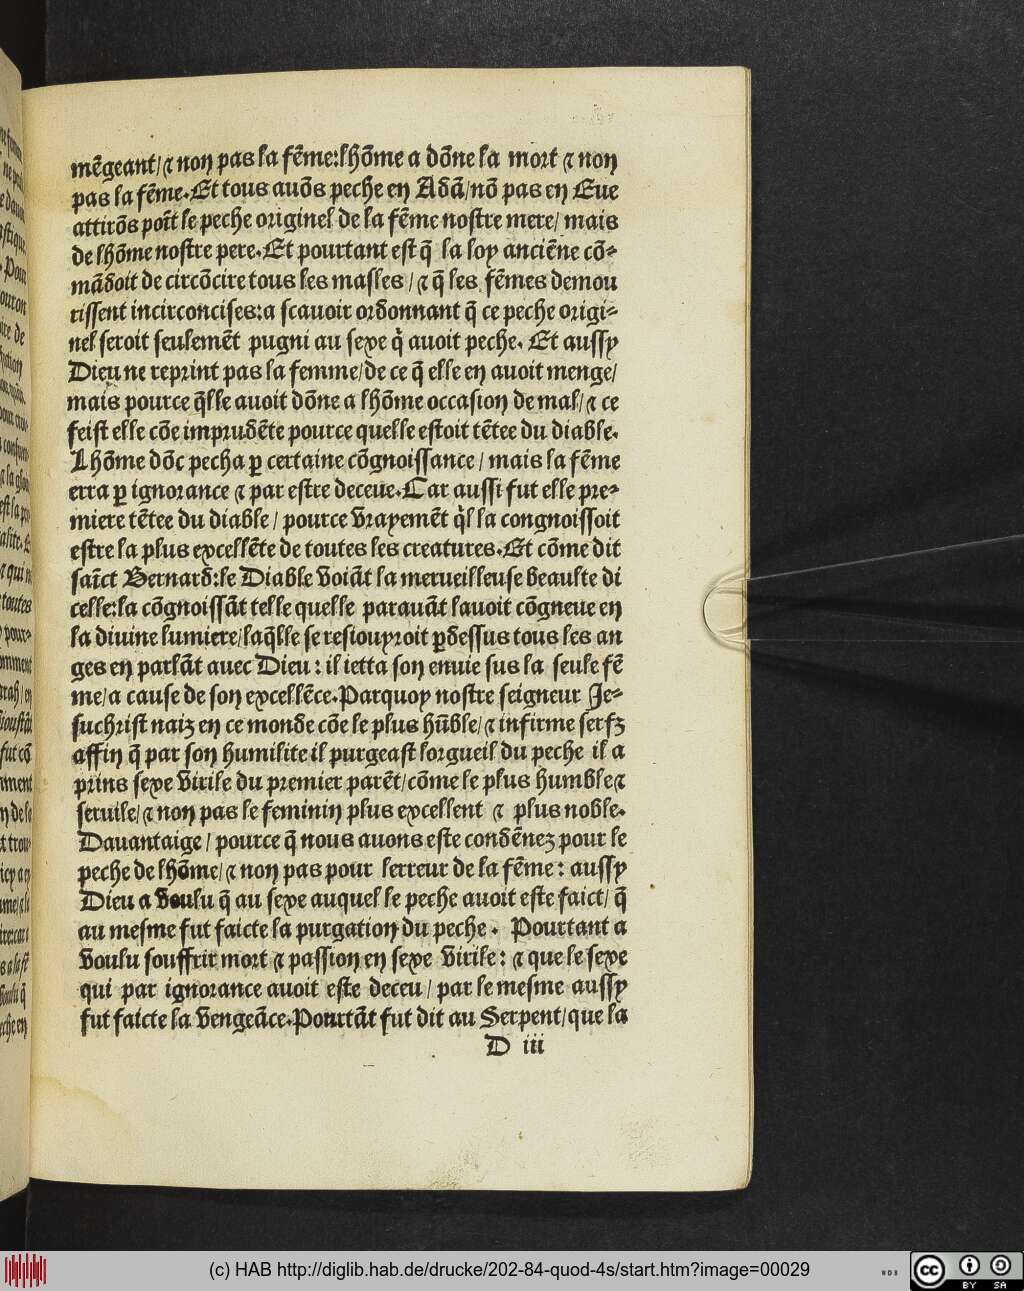 mẽgeant/ ⁊ non pas la fẽme:lhõme a dõne la mort ⁊ non
pas la fẽme. Et tous auõs peche en Adã/nõ pas en Eue
attirõs poĩt le peche originel de la fẽme nostre mere/ mais
de lhõme nostre pere. Et pourtant est q̃ la loy anciẽne cõ-
mãdoit de circõcire tous les masles / ⁊ q̃ les fẽmes demou
rissent incirconcises:a scauoir ordonnant q̃ ce peche origi-
nel seroit seulemẽt pugni au sexe q̉ auoit peche. Et aussy
Dieu ne reprint pas la femme/de ce q̃ elle en auoit menge/
mais pource q̃lle auoit dõne a lhõme occasion de mal/ ⁊ ce
feist elle cõe imprudẽte pource quelle estoit tẽtee du diable.
Lhõme dõc pecha ꝑ certaine cõgnoissance / mais la fẽme
erra ꝑ ignorance ⁊ par estre deceue. Car aussi fut elle pre-
miere tẽtee du diable / pource vrayemẽt q̉l la congnoissoit
estre la plus excellẽte de toutes les creatures. Et cõme dit
saĩct Bernard:le Diable voiãt la merueilleuse beaulte di
celle:la cõgnoissãt telle quelle parauãt lauoit cõgneue en
la diuine lumiere/laq̃lle se resiouyroit ꝑdessus tous les an
ges en parlãt auec Dieu : il ietta son enuie sus la seule fẽ
me/a cause de son excellẽce. Parquoy nostre seigneur Je-
suchrist naiz en ce monde cõe le plus hũble/ ⁊ infirme serfz
affin q̃ par son humilite il purgeast lorgueil du peche il a
prins sexe virile du premier parẽt/cõme le plus humble⁊
seruile/ ⁊ non pas le feminin plus excellent ⁊ plus noble.
Dauantaige / pource q̃ nous auons este condẽnez pour le
peche de lhõme/ ⁊ non pas pour lerreur de la fẽme : aussy
Dieu a voulu q̃ au sexe auquel le peche auoit este faict/ q̃
au mesme fut faicte la purgation du peche . Pourtant a
voulu souffrir mort ⁊ passion en sexe virile : ⁊ que le sexe
qui par ignorance auoit este deceu / par le mesme aussy
fut faicte la vengeãce. Pourtãt fut dit au Serpent/que la
D iii
(c) HAB http://diglib.hab.de/drucke/202-84-quod-4s/start.htm?image=00029
cc BY SA